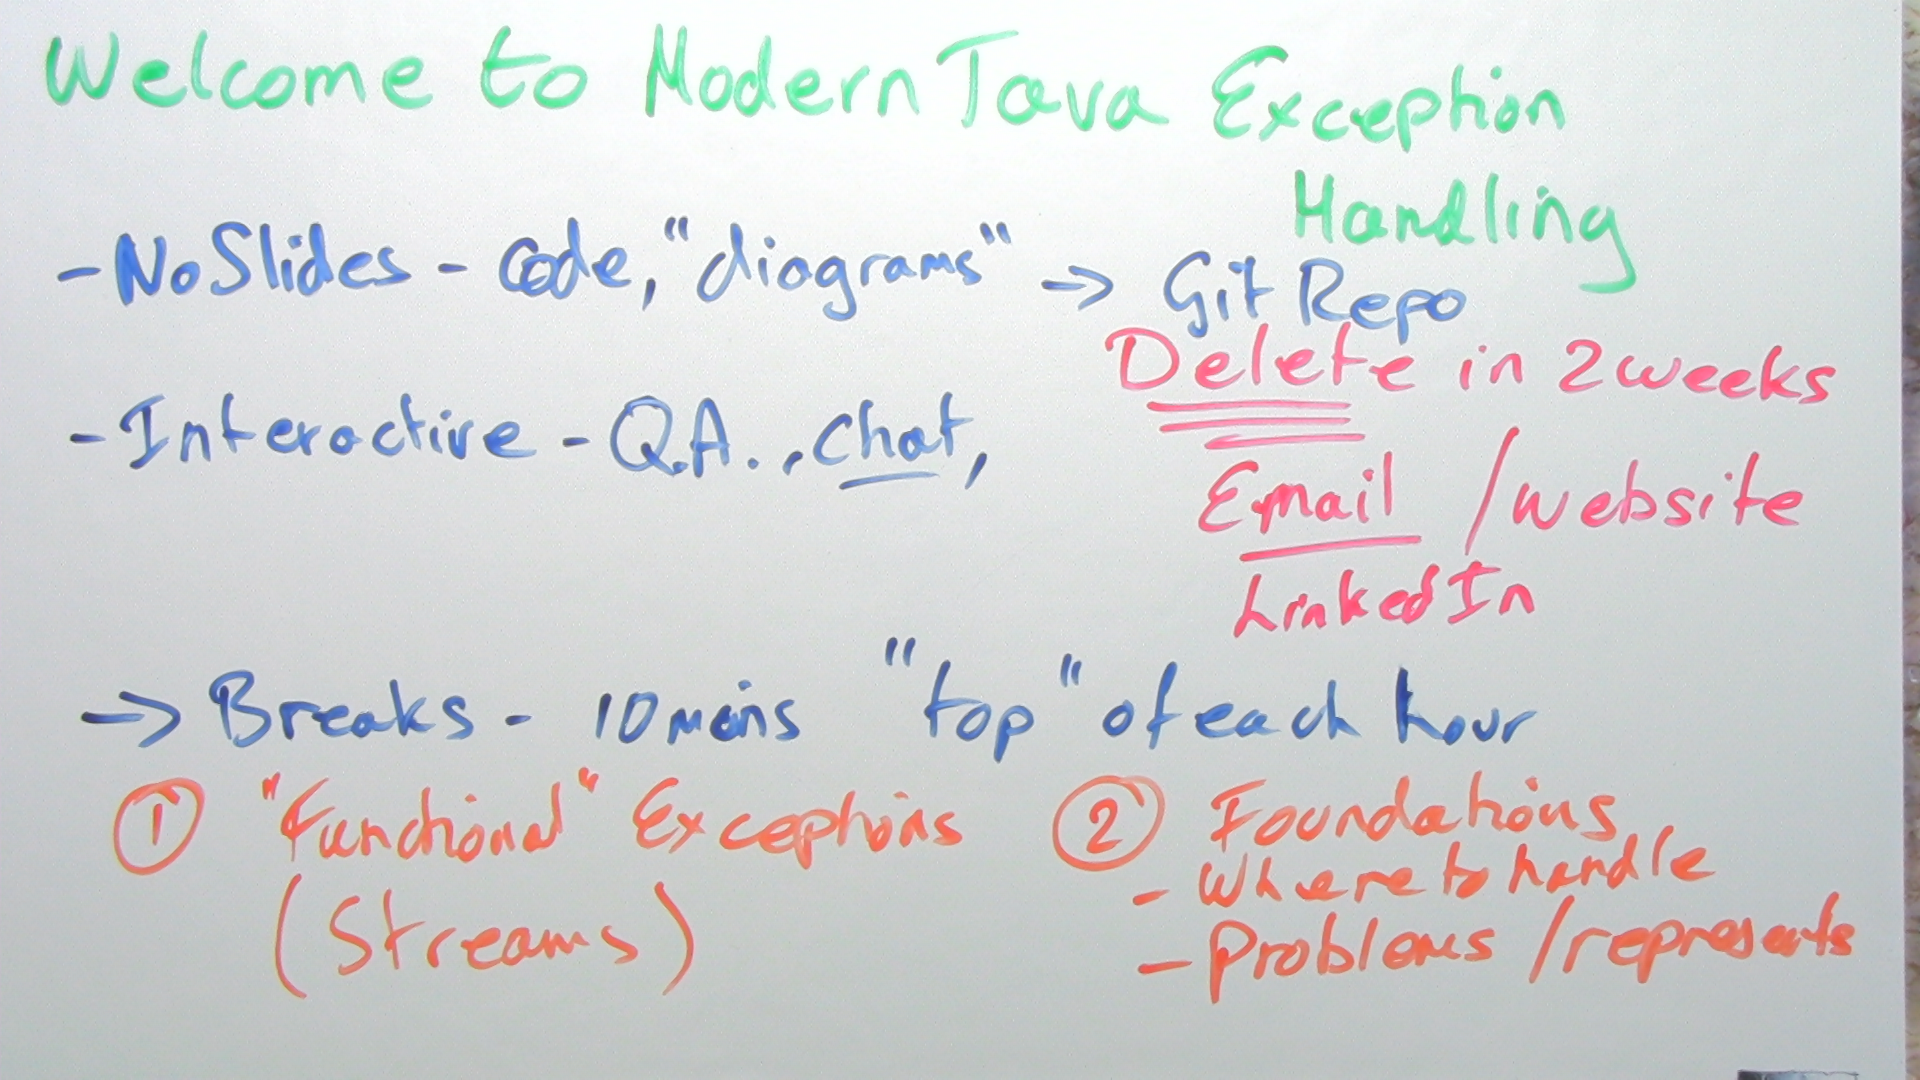 Welcome to Modern Java Exception
Handling
- No Slides - Code, "diagrams" -> Git Repo
Delete in 2 weeks
- Interactive - Q.A., chat,
Email / website
LinkedIn
-> Breaks - 10 mins "top" of each hour
① "Functional" Exceptions
(Streams)
② Foundations
- Where to handle
- Problems / represents